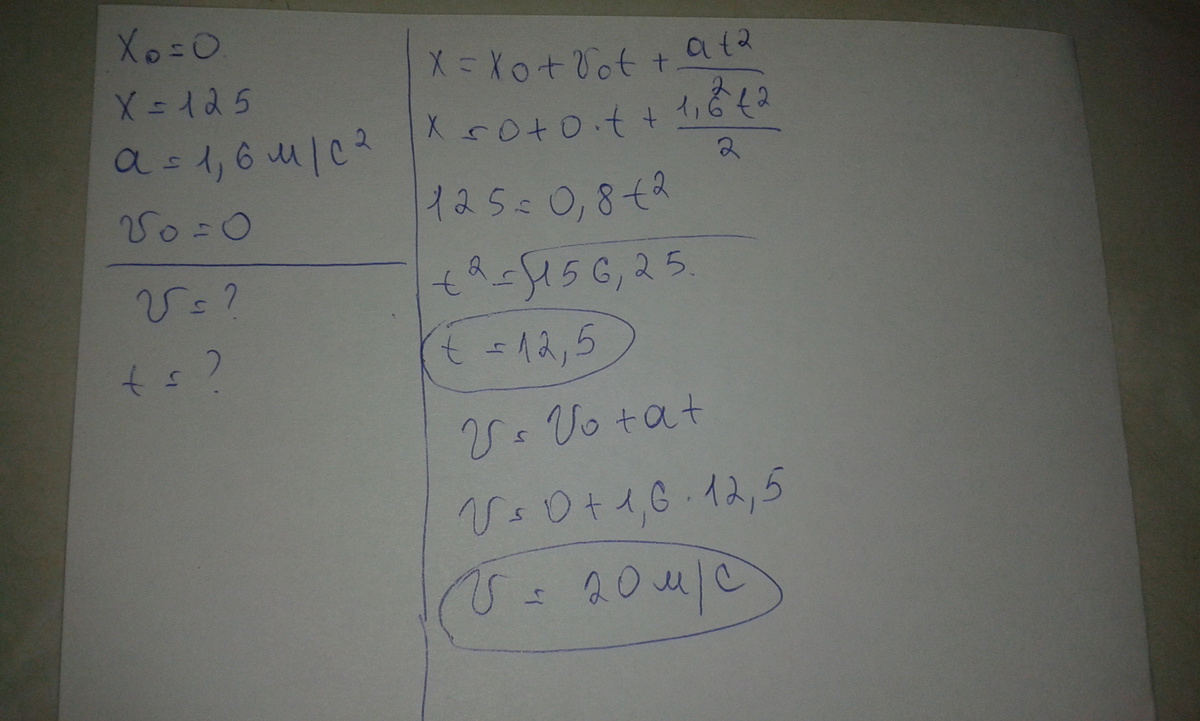 x₀=0
x=125
a=1,6 м/с²
v₀=0
v=?
t=?
x=x₀+v₀t+at²/2
x=0+0·t+1,6t²/2
125=0,8t²
t²=√156,25.
t=12,5
v=v₀+at
v=0+1,6·12,5
v=20 м/с